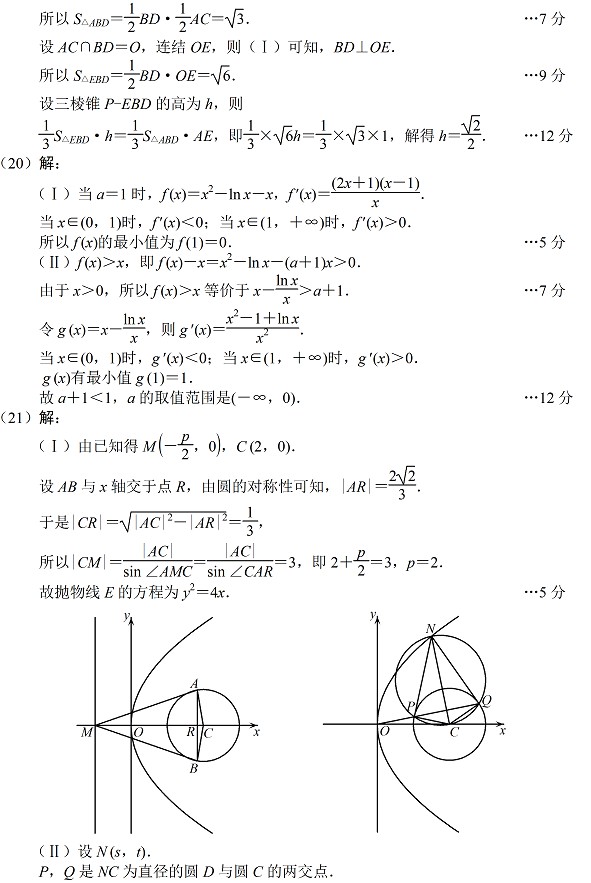 所以 S△ABD＝1/2 BD·1/2 AC＝√3． …7 分
设 AC∩BD＝O，连结 OE，则（Ⅰ）可知，BD⊥OE．
所以 S△EBD＝1/2 BD·OE＝√6． …9 分
设三棱锥 P-EBD 的高为 h，则
1/3 S△EBD·h＝1/3 S△ABD·AE，即 1/3×√6h＝1/3×√3×1，解得 h＝√2/2． …12 分
（20）解：
（Ⅰ）当 a＝1 时，f (x)＝x²－ln x－x，f ′(x)＝(2x＋1)(x－1)/x．
当 x∈(0，1)时，f ′(x)＜0；当 x∈(1，＋∞)时，f ′(x)＞0．
所以 f (x)的最小值为 f (1)＝0． …5 分
（Ⅱ）f (x)＞x，即 f (x)－x＝x²－ln x－(a＋1)x＞0．
由于 x＞0，所以 f (x)＞x 等价于 x－ln x/x＞a＋1． …7 分
令 g (x)＝x－ln x/x，则 g ′(x)＝x²－1＋ln x/x²．
当 x∈(0，1)时，g ′(x)＜0；当 x∈(1，＋∞)时，g ′(x)＞0．
g (x)有最小值 g (1)＝1．
故 a＋1＜1，a 的取值范围是(－∞，0)． …12 分
（21）解：
（Ⅰ）由已知得 M(－p/2，0)，C (2，0)．
设 AB 与 x 轴交于点 R，由圆的对称性可知，|AR|＝2√2/3．
于是|CR|＝√(|AC|²－|AR|²)＝1/3，
所以|CM|＝|AC|/sin ∠AMC＝|AC|/sin ∠CAR＝3，即 2＋p/2＝3，p＝2．
故抛物线 E 的方程为 y²＝4x． …5 分
y
A
M O R C x
B
y
N
P Q
O C x
（Ⅱ）设 N (s，t)．
P，Q 是 NC 为直径的圆 D 与圆 C 的两交点．